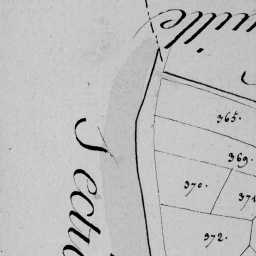 uille
Sectio
365.
369.
370.
371
372.